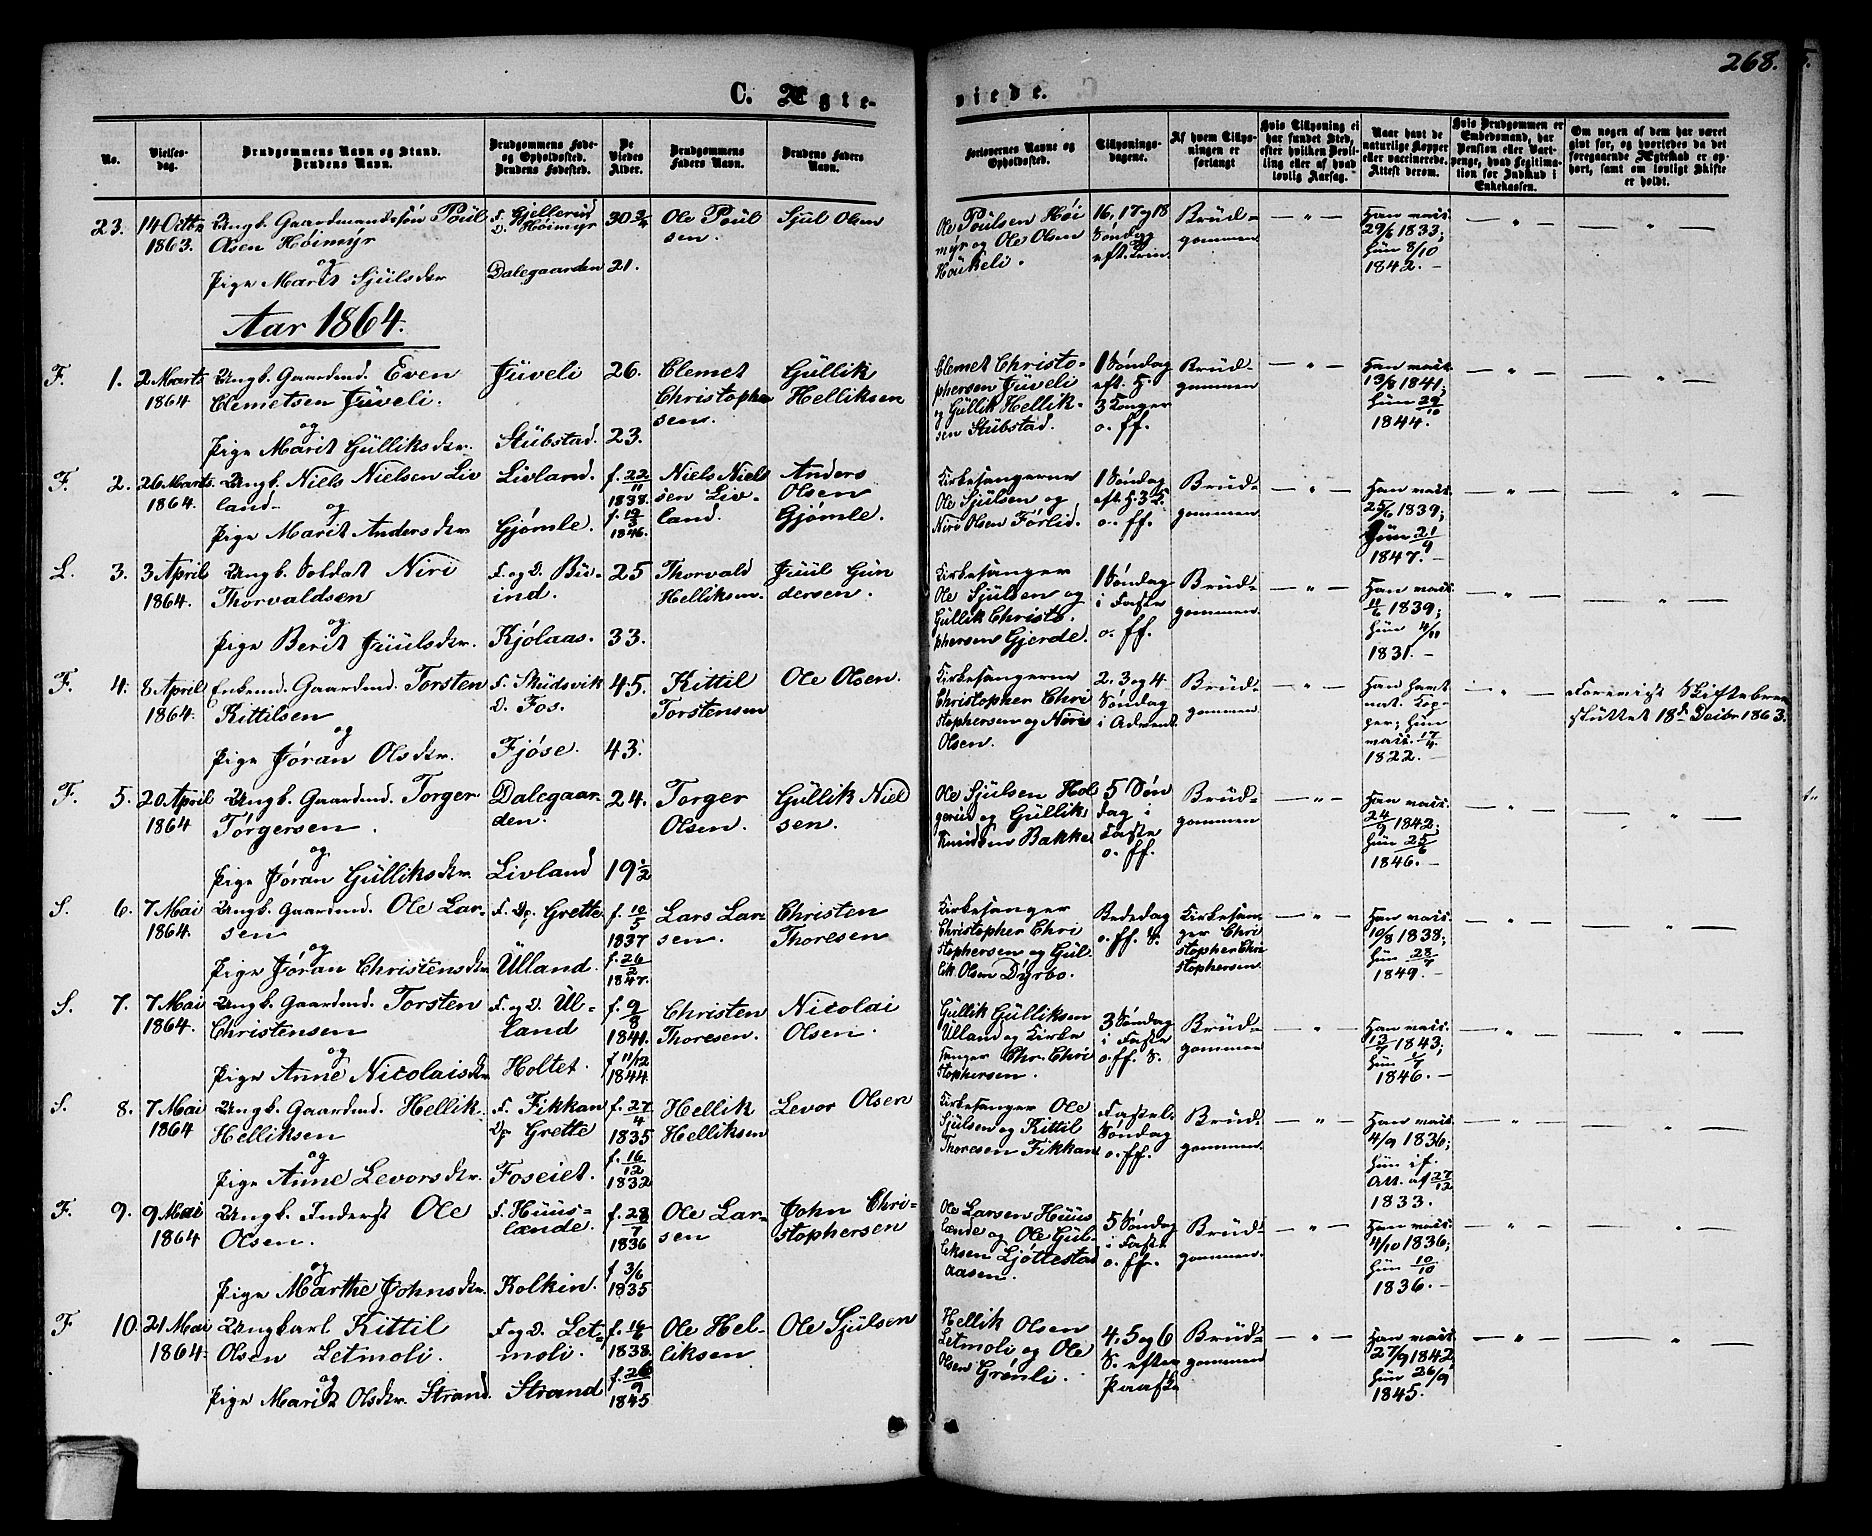 268.
C. Ægte-
viede.
No.
Vielses-
dag.
Brudgommens Navn og Stand.
Brudens Navn.
Brudgommens Føde-
og Opholdssted.
Brudens Fødested.
De
Viedes
Alder.
Brudgommens
Faders Navn.
Brudens Faders
Navn.
Forlovernes Navne og
Opholdssted.
Tillysnings-
dagene.
Af hvem Tillys-
ningen er
forlangt
Hvis Tillysning ei
har fundet Sted,
efter hvilken Bevil-
ling eller af hvad
lovlig Aarsag.
Naar havt de
naturlige Kopper
eller vaccinerede.
Attest derom.
Hvis Brudgommen er
Embedsmand, har
Pension eller Vart-
penge, hvad Legitima-
tion for Indskud i
Enkekassen.
Om nogen af dem har været
gift før, og hvorledes da det
foregaaende Ægteskab er op-
hørt, samt om lovligt Skifte
er holdt.
23.
14 Octbr
1863.
Ungk. Gaardmandssøn Poül
Olsen Höimÿr
og
Pige Marit Sjülsdtr
F. Gjellerud
D. Höimÿr
Dalegaarden
30 3/4
21.
Ole Poül
sen.
Sjul Olsen
Ole Poülsen Höi
myr og Ole Olsen
Haükeli.
16, 17 og 18
Söndag
eft. Trin.
Brüd-
gommen
Han vacc.
29/6 1833;
hün 8/10
1842. —
Aar 1864.
F. 1.
2 Marts
1864.
Ungk. Gaardmd. Even
Clemetsen Jüveli.
og
Pige Marit Gülliksdtr.
Jüveli
Stübstad.
26.
23.
Clemet
Christopher
sen.
Güllik
Helliksen
Clemet Christo-
phersen Jüveli
og Güllik Hellik-
sen Stübstad.
1 Söndag
eft. H.
3 Konger
o. ff.
Brüd-
gommen
Han vacc.
13/8 1841;
hün 29/10
1844.
F. 2.
26 Marts
1864.
Ungk. Niels Nielsen Liv
land. og
Pige Marit Andersdtr.
Livland.
Gjömle.
f. 22/11
1838.
f. 19/3
1846.
Niels Niels
sen Liv-
land.
Anders
Olsen
Gjömle.
Kirkesangerne
Ole Sjülsen og
Niri Olsen Förlid.
1 Söndag
eft. H. 3 K.
o. ff.
Brüd-
gommen.
Han vacc.
25/6 1839;
Hün 21/9
1847. —
L. 3.
3 April
1864.
Ungk. Soldat Niri
Thorvaldsen
og
Pige Berit Jüülsdtr.
F. og D. Bü-
ind.
Kjölaas.
25
33.
Thorvald
Helliksen.
Jüül Gün
dersen.
Kirkesanger
Ole Sjülsen og
Güllik Christo
phersen Gjerde.
1 Söndag
i Faste
o. ff.
Brüd-
gommen.
Han vacc.
11/6 1839;
hün 4/11
1831. —
F. 4.
8 April
1864.
Enkemd. Gaardmd. Torsten
Kittilsen
og
Pige Jöran Olsdtr.
F. Müdsvik
D. Fos.
Fjöse.
45.
43.
Kittil
Torstensen
Ole Olsen.
Kirkesangerne
Christopher Chri
stophersen og Niri
Olsen.
2. 3 og 4
Söndag
i Advent
Brüd-
gommen.
Han havt
nat. Kop-
per; hün
vacc. 17/4
1822. —
Forevist Skiftebrev
slüttet 18de Decbr 1863.
F. 5.
20 April
1864
Ungk. Gaardmd. Torger
Törgersen.
og
Pige Jöran Gülliksdtr.
Dalegaar-
den.
Livland
24.
19 1/2
Torger
Olsen.
Güllik Niel
sen.
Ole Sjülsen Hol
gerüd og Güllik
Knüdsen Bakke
5 Sön
dag i
Faste
o. ff.
Brüd-
gommen
Han vacc.
24/9 1842;
hün 25/6
1846. —
S. 6.
7 Mai
1864.
Ungk. Gaardmd. Ole Lar-
sen
og
Pige Jöran Christensdtr
F. Dp. Grette
Ülland.
f. 10/5
1837
f. 26/2
1847.
Lars Lar-
sen.
Christen
Thoresen
Kirkesanger
Christopher Chri
stophersen og Gül-
lik Olsen Dÿrbo.
Bededag
o. ff. S.
Kirkesan-
ger Chri
stopher Chri
stophersen.
Han vacc.
10/8 1838;
hün 28/7
1849. —
S. 7.
7 Mai
1864.
Ungk. Gaardmd. Torsten
Christensen
og
Pige Anne Nicolaisdtr
F. og D. Ül-
land
Holtet.
f. 9/8
1841.
f 11/12
1844
Christen
Thoresen.
Nicolai
Olsen.
Güllik Gülliksen
Ülland og Kirke
sanger Chr. Chri
stophersen.
3 Söndag
i Faste
o. ff. S.
Brüd-
gommen
Han vacc.
13/7 1843;
hün 1/7
1846. —
S. 8.
7 Mai
1864
Ungk. Gaardmd. Hellik
Helliksen
og
Pige Anne Levorsdtr.
F. Fikkan
Dp Grette
Foseiet.
f. 27/4
1835
f. 16/12
1832
Hellik
Helliksen
Levor Olsen
Kirkesanger Ole
Sjülsen og Kittil
Thoresen Fikkan
Fastel.
Söndag
o. ff.
Brüd-
gommen.
Han vacc.
4/9 1836;
hün if.
Att. af 27/12
1833.
F. 9.
9 Mai
1864
Ungk. Inderst Ole
Olsen.
og
Pige Marthe Johnsdtr.
F. Hüüs-
lænde.
Kolkin.
f. 28/7
1836
f 3/6
1835
Ole Lar-
sen
John Chri-
stophersen
Ole Larsen Hüüs
lænde og Ole Gül-
liksen Ljöttestad
aasen.
5 Söndag
i Faste
o. ff.
Brüd-
gommen.
Han vacc.
4/10 1836;
hün 10/10
1836. —
F 10.
21 Mai
1864.
Ungkarl Kittil
Olsen Letmoli.
og
Pige Marit Olsdtr. Strand.
F. og D. Let-
moli.
Strand
f. 16/6
1838.
f. 26/9
1845
Ole Hel-
liksen
Ole Sjülsen
Hellik Olsen
Letmoli og Ole
Olsen Grönli.
4. 5 og 6
S. efter
Paaske
Brüd-
gommen
Han vacc.
27/9 1842
hün 26/9
1845.